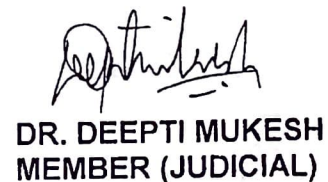 DR. DEEPTI MUKESH
MEMBER (JUDICIAL)